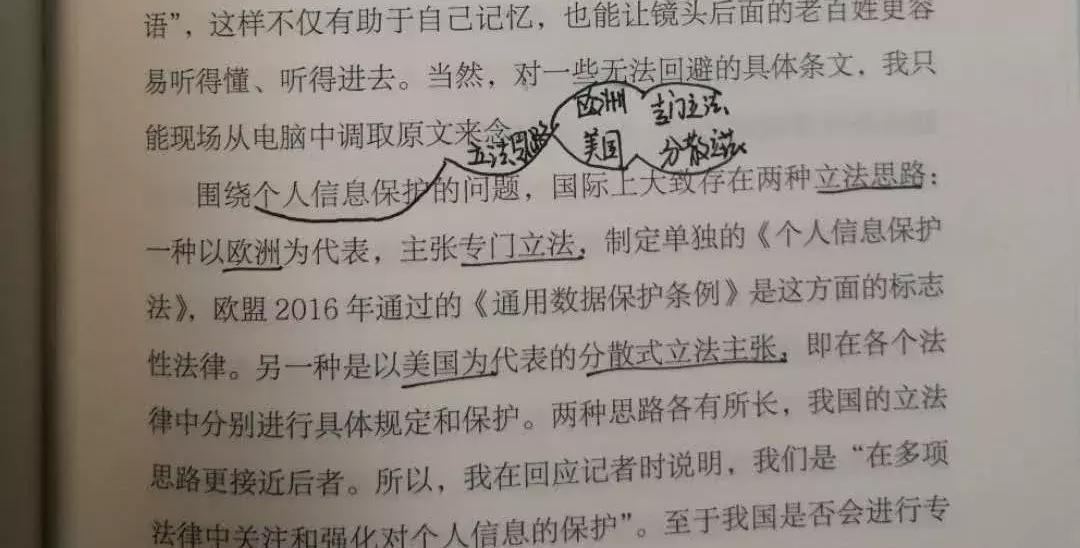 语”，这样不仅有助于自己记忆，也能让镜头后面的老百姓更容
易听得懂、听得进去。当然，对一些无法回避的具体条文，我只
能现场从电脑中调取原文来念。
立法思路
欧洲 专门立法
美国 分散立法
围绕个人信息保护的问题，国际上大致存在两种立法思路：
一种以欧洲为代表，主张专门立法，制定单独的《个人信息保护
法》，欧盟 2016 年通过的《通用数据保护条例》是这方面的标志
性法律。另一种是以美国为代表的分散式立法主张，即在各个法
律中分别进行具体规定和保护。两种思路各有所长，我国的立法
思路更接近后者。所以，我在回应记者时说明，我们是“在多项
法律中关注和强化对个人信息的保护”。至于我国是否会进行专